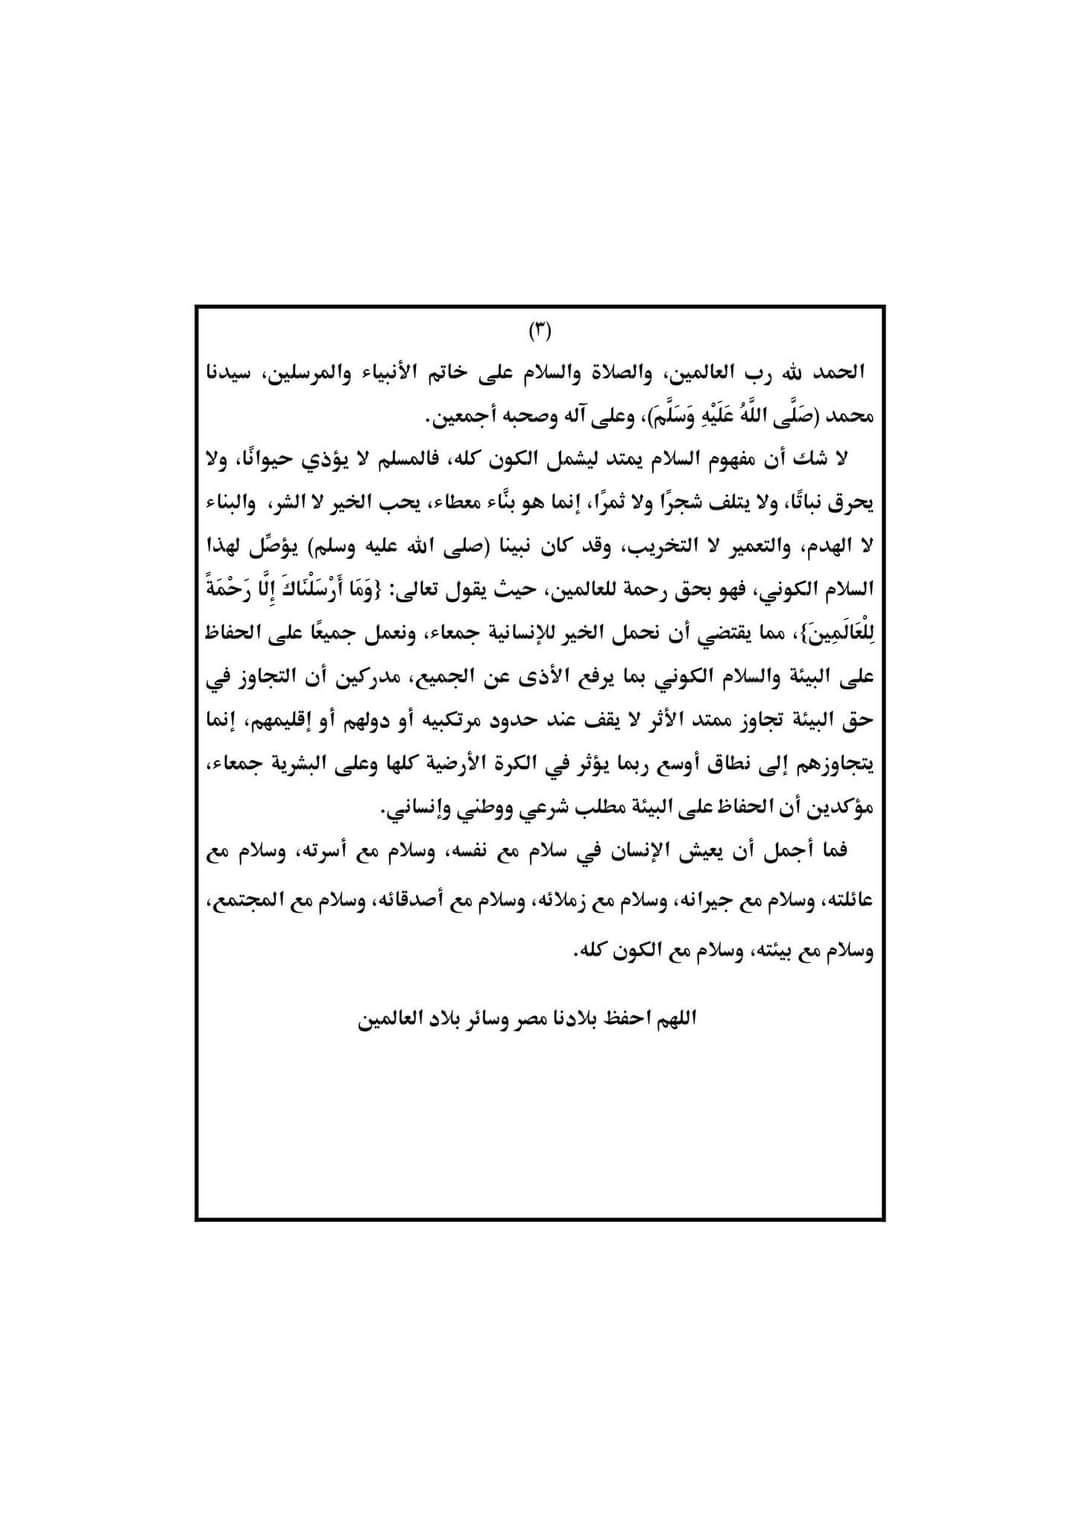 (٣)
الحمد لله رب العالمين، والصلاة والسلام على خاتم الأنبياء والمرسلين، سيدنا
محمد (صَلَّى اللَّهُ عَلَيْهِ وَسَلَّمَ)، وعلى آله وصحبه أجمعين.
لا شك أن مفهوم السلام يمتد ليشمل الكون كله، فالمسلم لا يؤذي حيوانًا، ولا
يحرق نباتًا، ولا يتلف شجرًا ولا ثمرًا، إنما هو بنَّاء معطاء، يحب الخير لا الشر، والبناء
لا الهدم، والتعمير لا التخريب، وقد كان نبينا (صلى الله عليه وسلم) يؤصِّل لهذا
السلام الكوني، فهو بحق رحمة للعالمين، حيث يقول تعالى: {وَمَا أَرْسَلْنَاكَ إِلَّا رَحْمَةً
لِلْعَالَمِينَ}، مما يقتضي أن نحمل الخير للإنسانية جمعاء، ونعمل جميعًا على الحفاظ
على البيئة والسلام الكوني بما يرفع الأذى عن الجميع، مدركين أن التجاوز في
حق البيئة تجاوز ممتد الأثر لا يقف عند حدود مرتكبيه أو دولهم أو إقليمهم، إنما
يتجاوزهم إلى نطاق أوسع ربما يؤثر في الكرة الأرضية كلها وعلى البشرية جمعاء،
مؤكدين أن الحفاظ على البيئة مطلب شرعي ووطني وإنساني.
فما أجمل أن يعيش الإنسان في سلام مع نفسه، وسلام مع أسرته، وسلام مع
عائلته، وسلام مع جيرانه، وسلام مع زملائه، وسلام مع أصدقائه، وسلام مع المجتمع،
وسلام مع بيئته، وسلام مع الكون كله.
اللهم احفظ بلادنا مصر وسائر بلاد العالمين